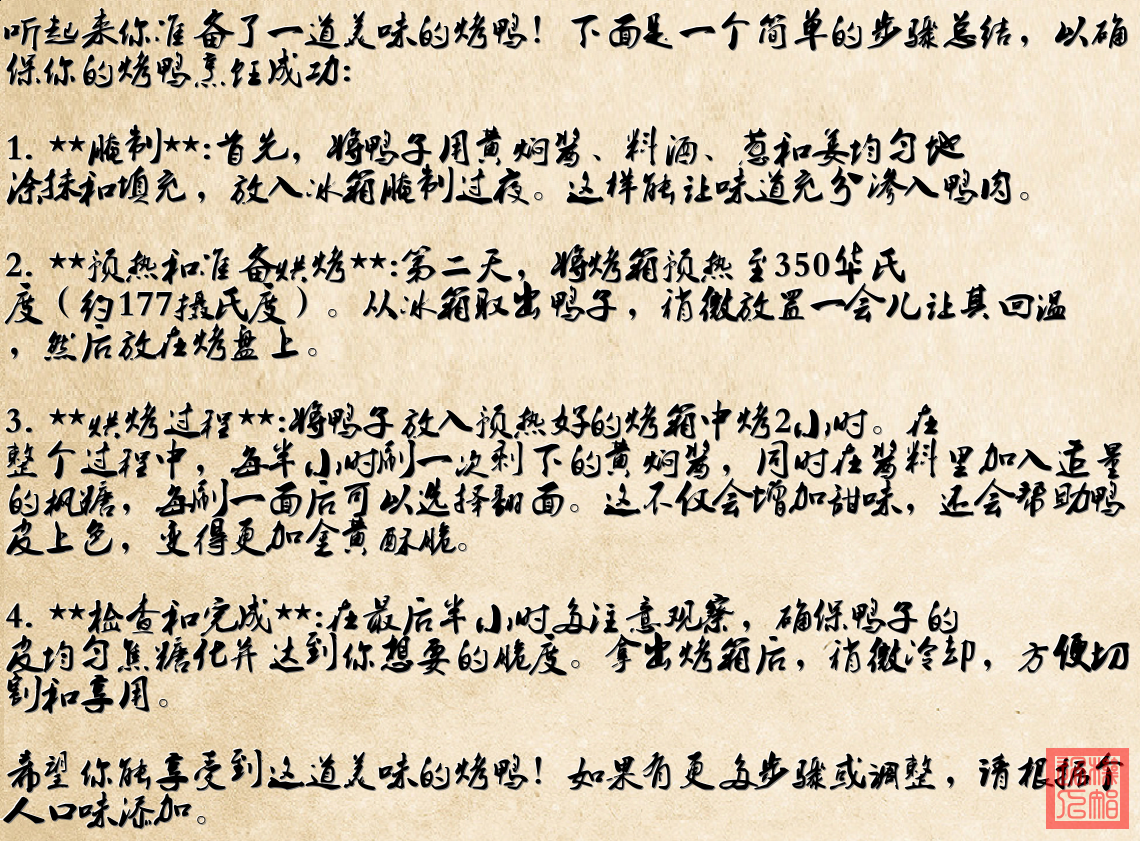 听起来你准备了一道美味的烤鸭！下面是一个简单的步骤总结，以确
保你的烤鸭烹饪成功：
1. **腌制**：首先，将鸭子用黄焖酱、料酒、葱和姜均匀地
涂抹和填充，放入冰箱腌制过夜。这样能让味道充分渗入鸭肉。
2. **预热和准备烘烤**：第二天，将烤箱预热至350华氏
度（约177摄氏度）。从冰箱取出鸭子，稍微放置一会儿让其回温
，然后放在烤盘上。
3. **烘烤过程**：将鸭子放入预热好的烤箱中烤2小时。在
整个过程中，每半小时刷一次剩下的黄焖酱，同时在酱料里加入适量
的枫糖，每刷一面后可以选择翻面。这不仅会增加甜味，还会帮助鸭
皮上色，变得更加金黄酥脆。
4. **检查和完成**：在最后半小时多注意观察，确保鸭子的
皮均匀焦糖化并达到你想要的脆度。拿出烤箱后，稍微冷却，方便切
割和享用。
希望你能享受到这道美味的烤鸭！如果有更多步骤或调整，请根据个
人口味添加。